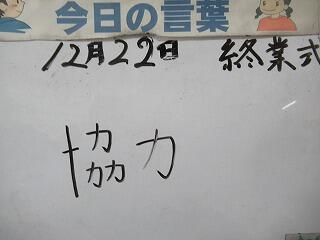 今日の言葉
12月22日 終業式
協力